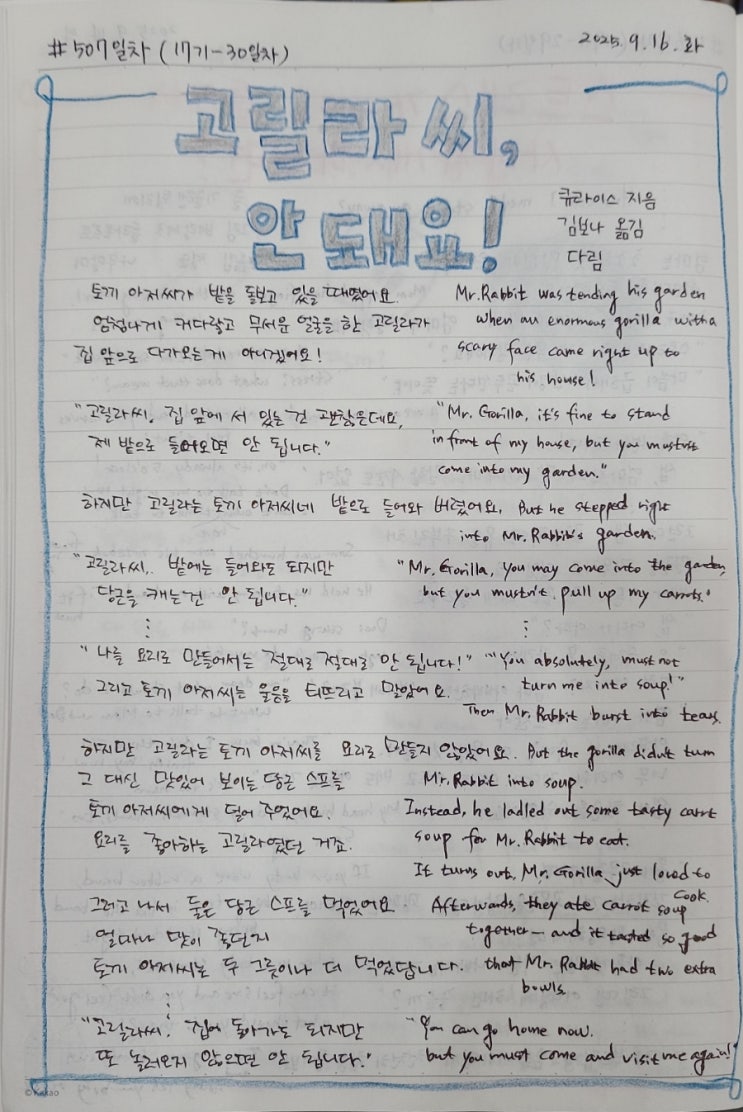 #507일차 (17기-30일차)
2025.9.16.화
고릴라 씨,
안 돼요!
큐라이스 지음
김보나 옮김
다림
토끼 아저씨가 밭을 돌보고 있을 때였어요.
엄청나게 커다랗고 무서운 얼굴을 한 고릴라가
집 앞으로 다가오는게 아니겠어요!
Mr.Rabbit was tending his garden
when an enormous gorilla with a
scary face came right up to
his house!
"고릴라씨. 집 앞에 서 있는건 괜찮은데요,
제 밭으로 들어오면 안 됩니다."
"Mr. Gorilla, it's fine to stand
in front of my house, but you mustnt
come into my garden."
하지만 고릴라는 토끼 아저씨네 밭으로 들어와 버렸어요. But he stepped right
into Mr. Rabbit's garden.
"고릴라씨.. 밭에는 들어와도 되지만
당근을 캐는건 안 됩니다."
"Mr. Gorilla, you may come into the garden,
but you mustn't pull up my carrots."
⋮ ⋮
"나를 요리로 만들어서는 절대로 절대로 안 됩니다!"
그리고 토끼 아저씨는 울음을 터뜨리고 말았어요.
"You absolutely, must not
turn me into soup!"
Then Mr. Rabbit burst into tears.
하지만 고릴라는 토끼 아저씨를 요리로 만들지 않았어요.
그 대신 맛있어 보이는 당근 스프를
토끼 아저씨에게 덜어 주었어요.
요리를 좋아하는 고릴라였던 거죠.
But the gorilla didn't turn
Mr. Rabbit into soup.
Instead, he ladled out some tasty carrt
soup for Mr. Rabbit to eat.
It turns out, Mr. Gorilla just loved to
cook.
그러고 나서 둘은 당근 스프를 먹었어요.
얼마나 맛이 좋던지
토끼 아저씨는 두 그릇이나 더 먹었답니다.
Afterwards, they ate carrot soup
together — and it tasted so good
that Mr. Rabbit had two extra
bowls.
⋮
"고릴라씨. 집에 돌아가도 되지만
또 놀러오지 않으면 안 됩니다."
"You can go home now.
but you must come and visit me again!"
©Kakao